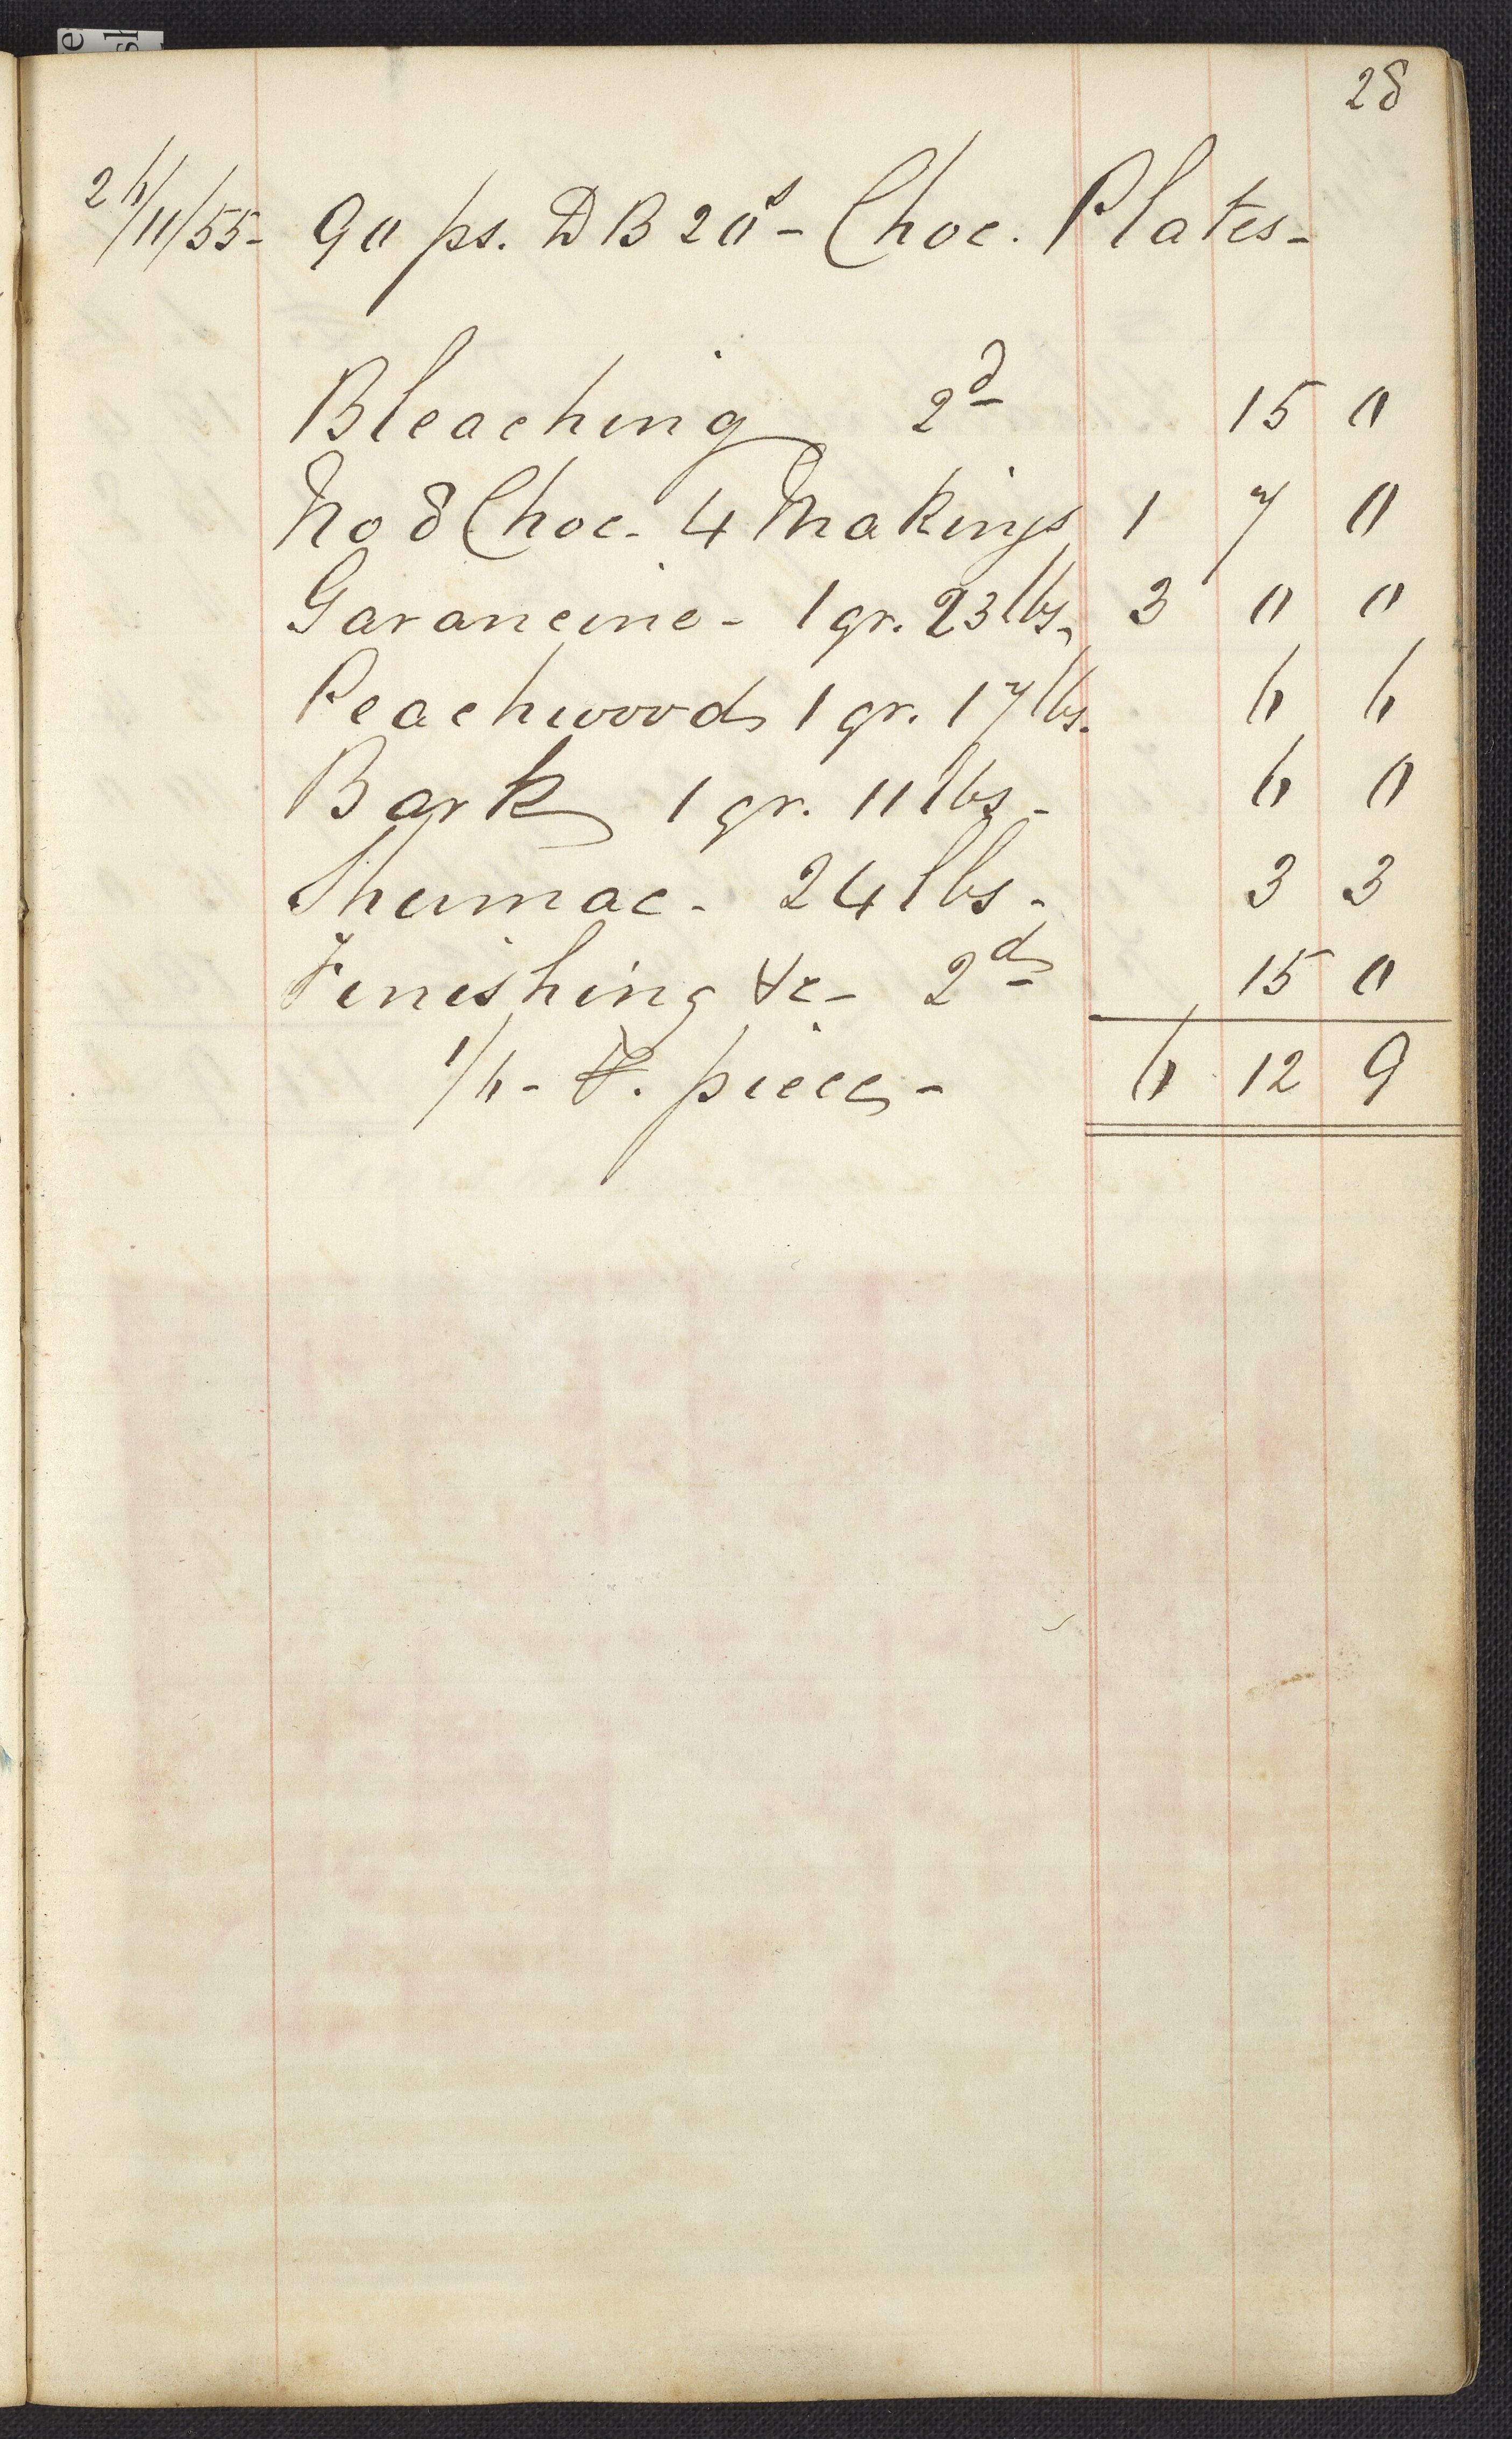 28
26/11/55- 90 ps. DB 20s - Choc. Plates -
Bleaching 2d 15 0
No 8 Choc. 4 Makings 1 7 0
Garancine - 1 qr. 23 lbs. 3 0 0
Peachwood 1 qr. 17 lbs. 6 6
Bark 1 qr. 11 lbs - 6 0
Shumac - 24 lbs - 3 3
Finishing &c - 2d 15 0
1/6 - ⅌. piece - 6 12 9